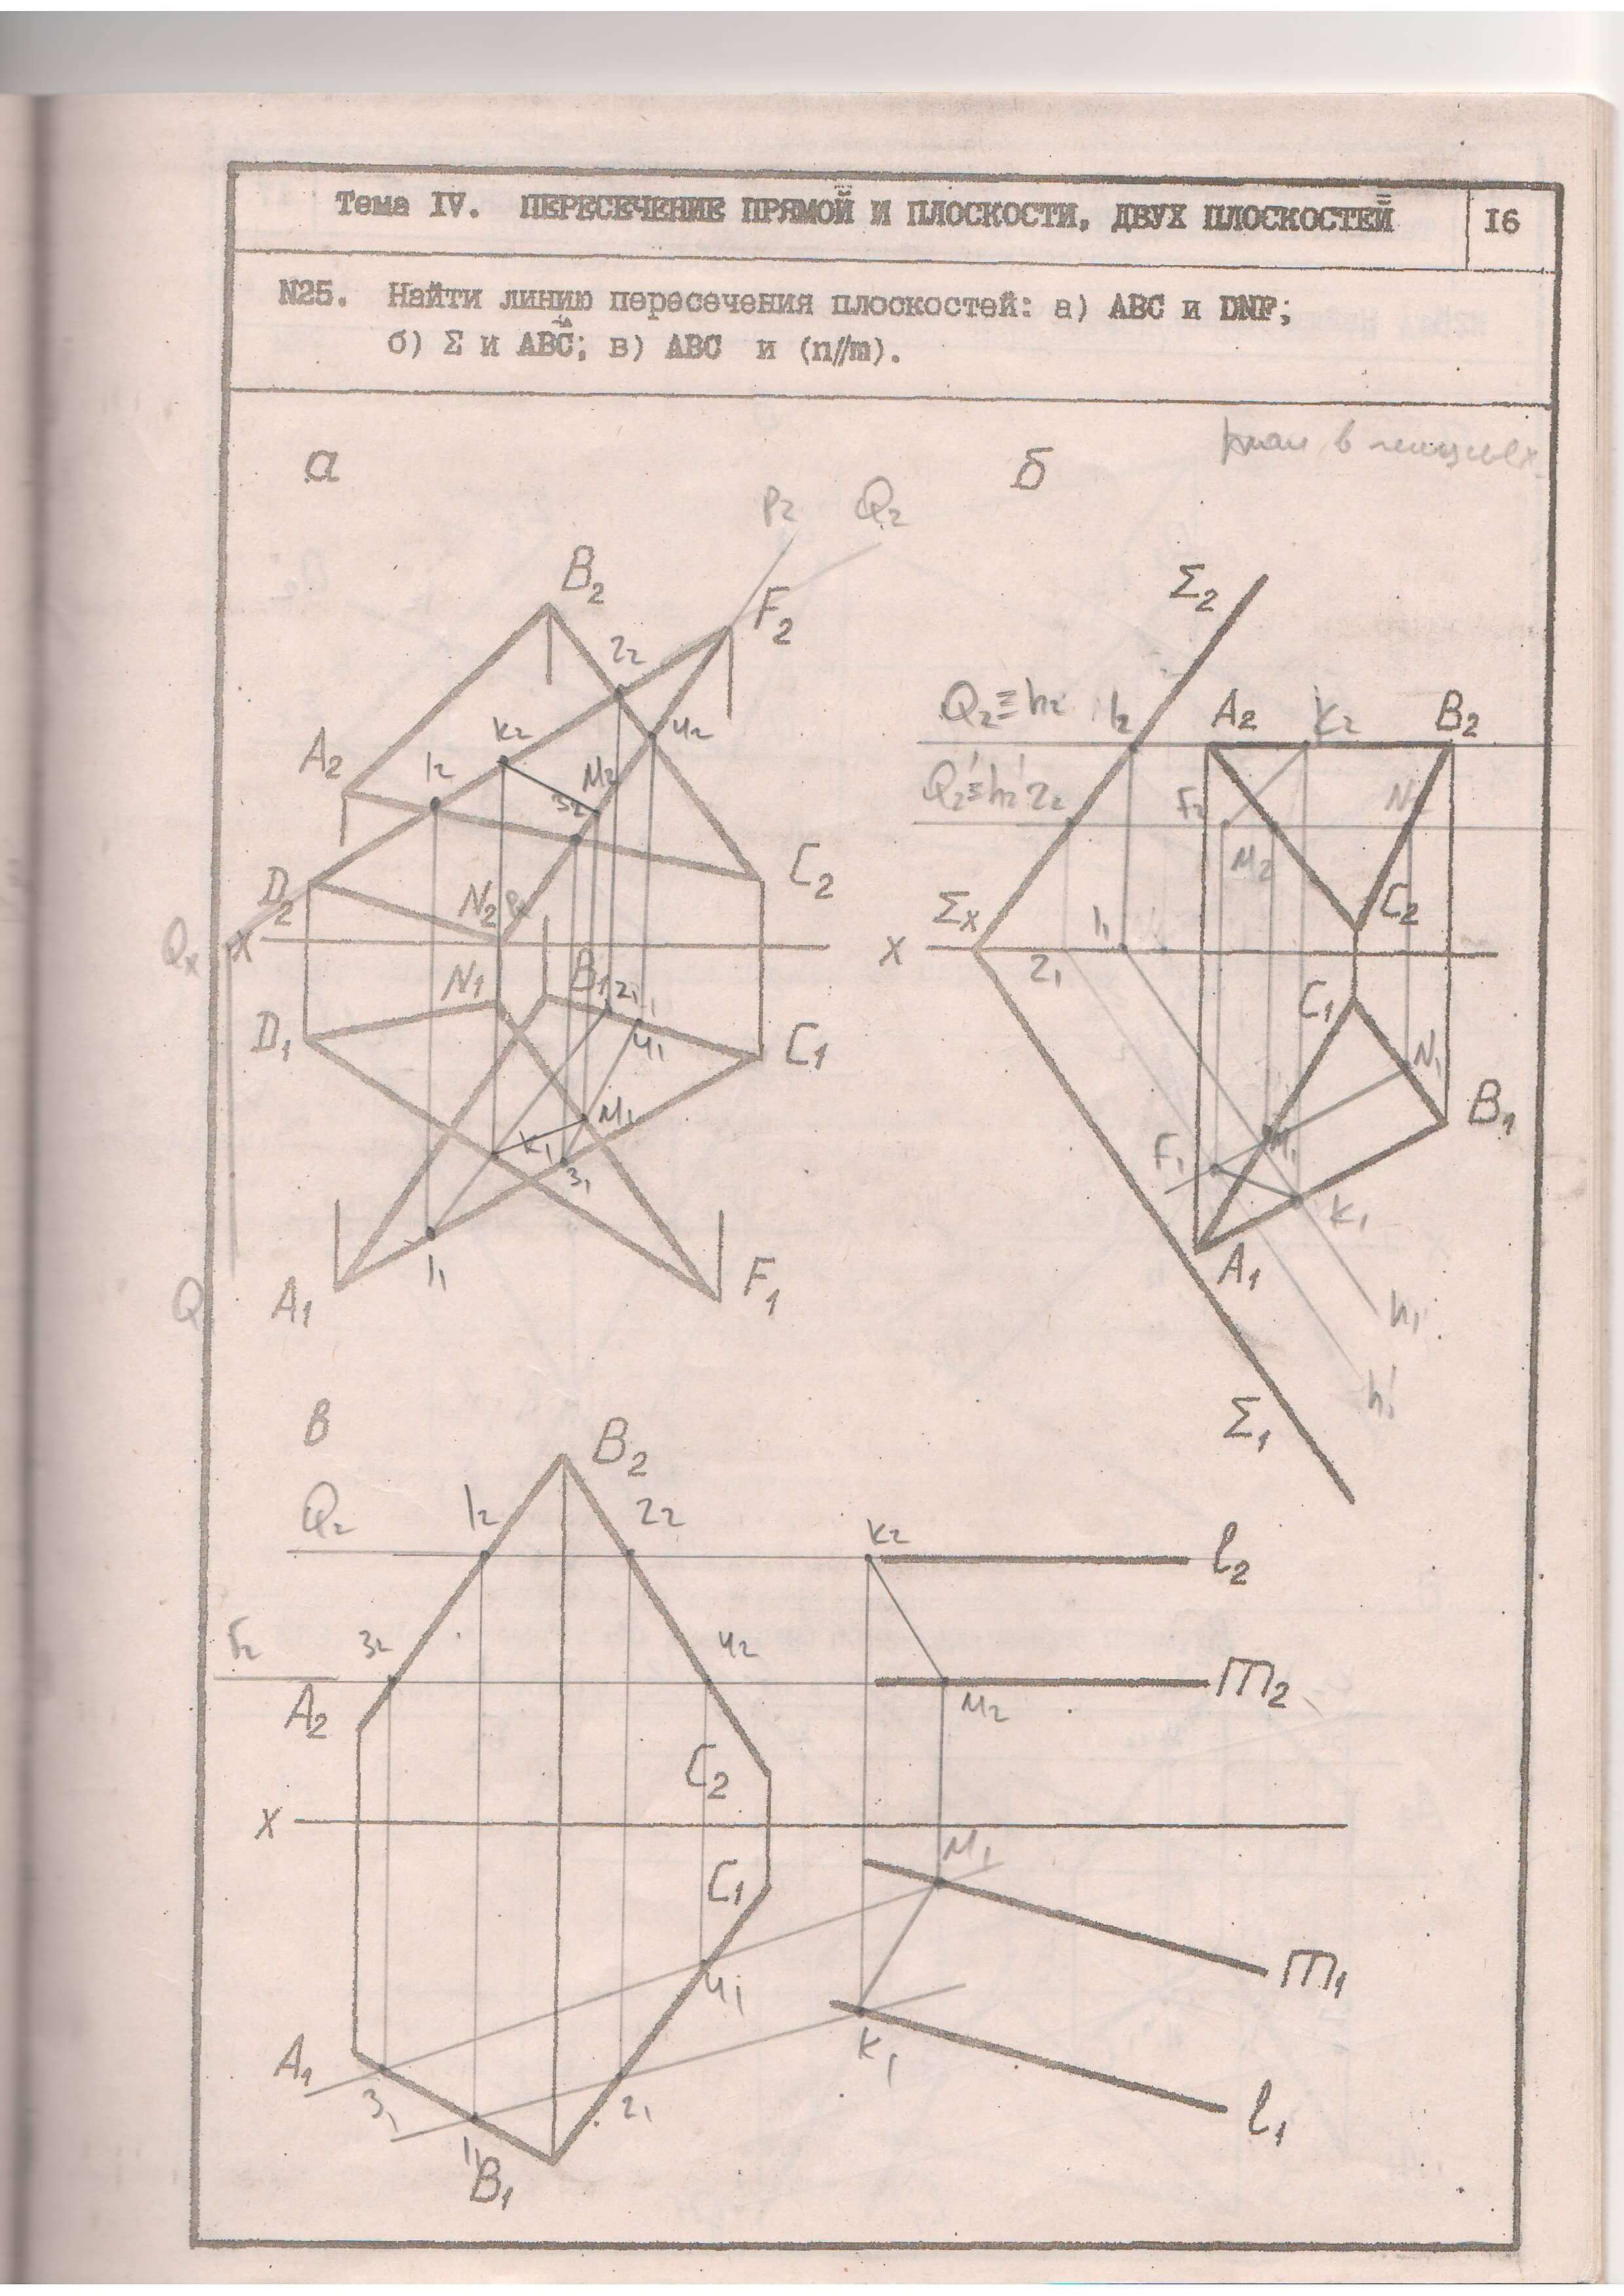 Тема IV. ПЕРЕСЕЧЕНИЕ ПРЯМОЙ И ПЛОСКОСТИ, ДВУХ ПЛОСКОСТЕЙ
I6
N25. Найти линию пересечения плоскостей: а) ABC и DNF;
б) Σ и ABC; в) ABC и (n//m).
а
б
P2 Q2
B2
F2
22
K2
42
A2
12
M2
32
C2
D2
N2
Qx
X
N1
B1
21
D1
41
C1
M1
K1
31
11
A1
F1
Σ2
Q2≡h2
12
A2
K2
B2
Q2'≡h2'
22
F2
N2
M2
C2
Σx
11
X
21
C1
N1
B1
F1
M1
K1
A1
h1
h1'
Σ1
в
B2
Q2
12
22
K2
l2
F2
32
42
A2
M2
m2
C2
X
M1
C1
m1
41
A1
K1
31
21
l1
11
B1